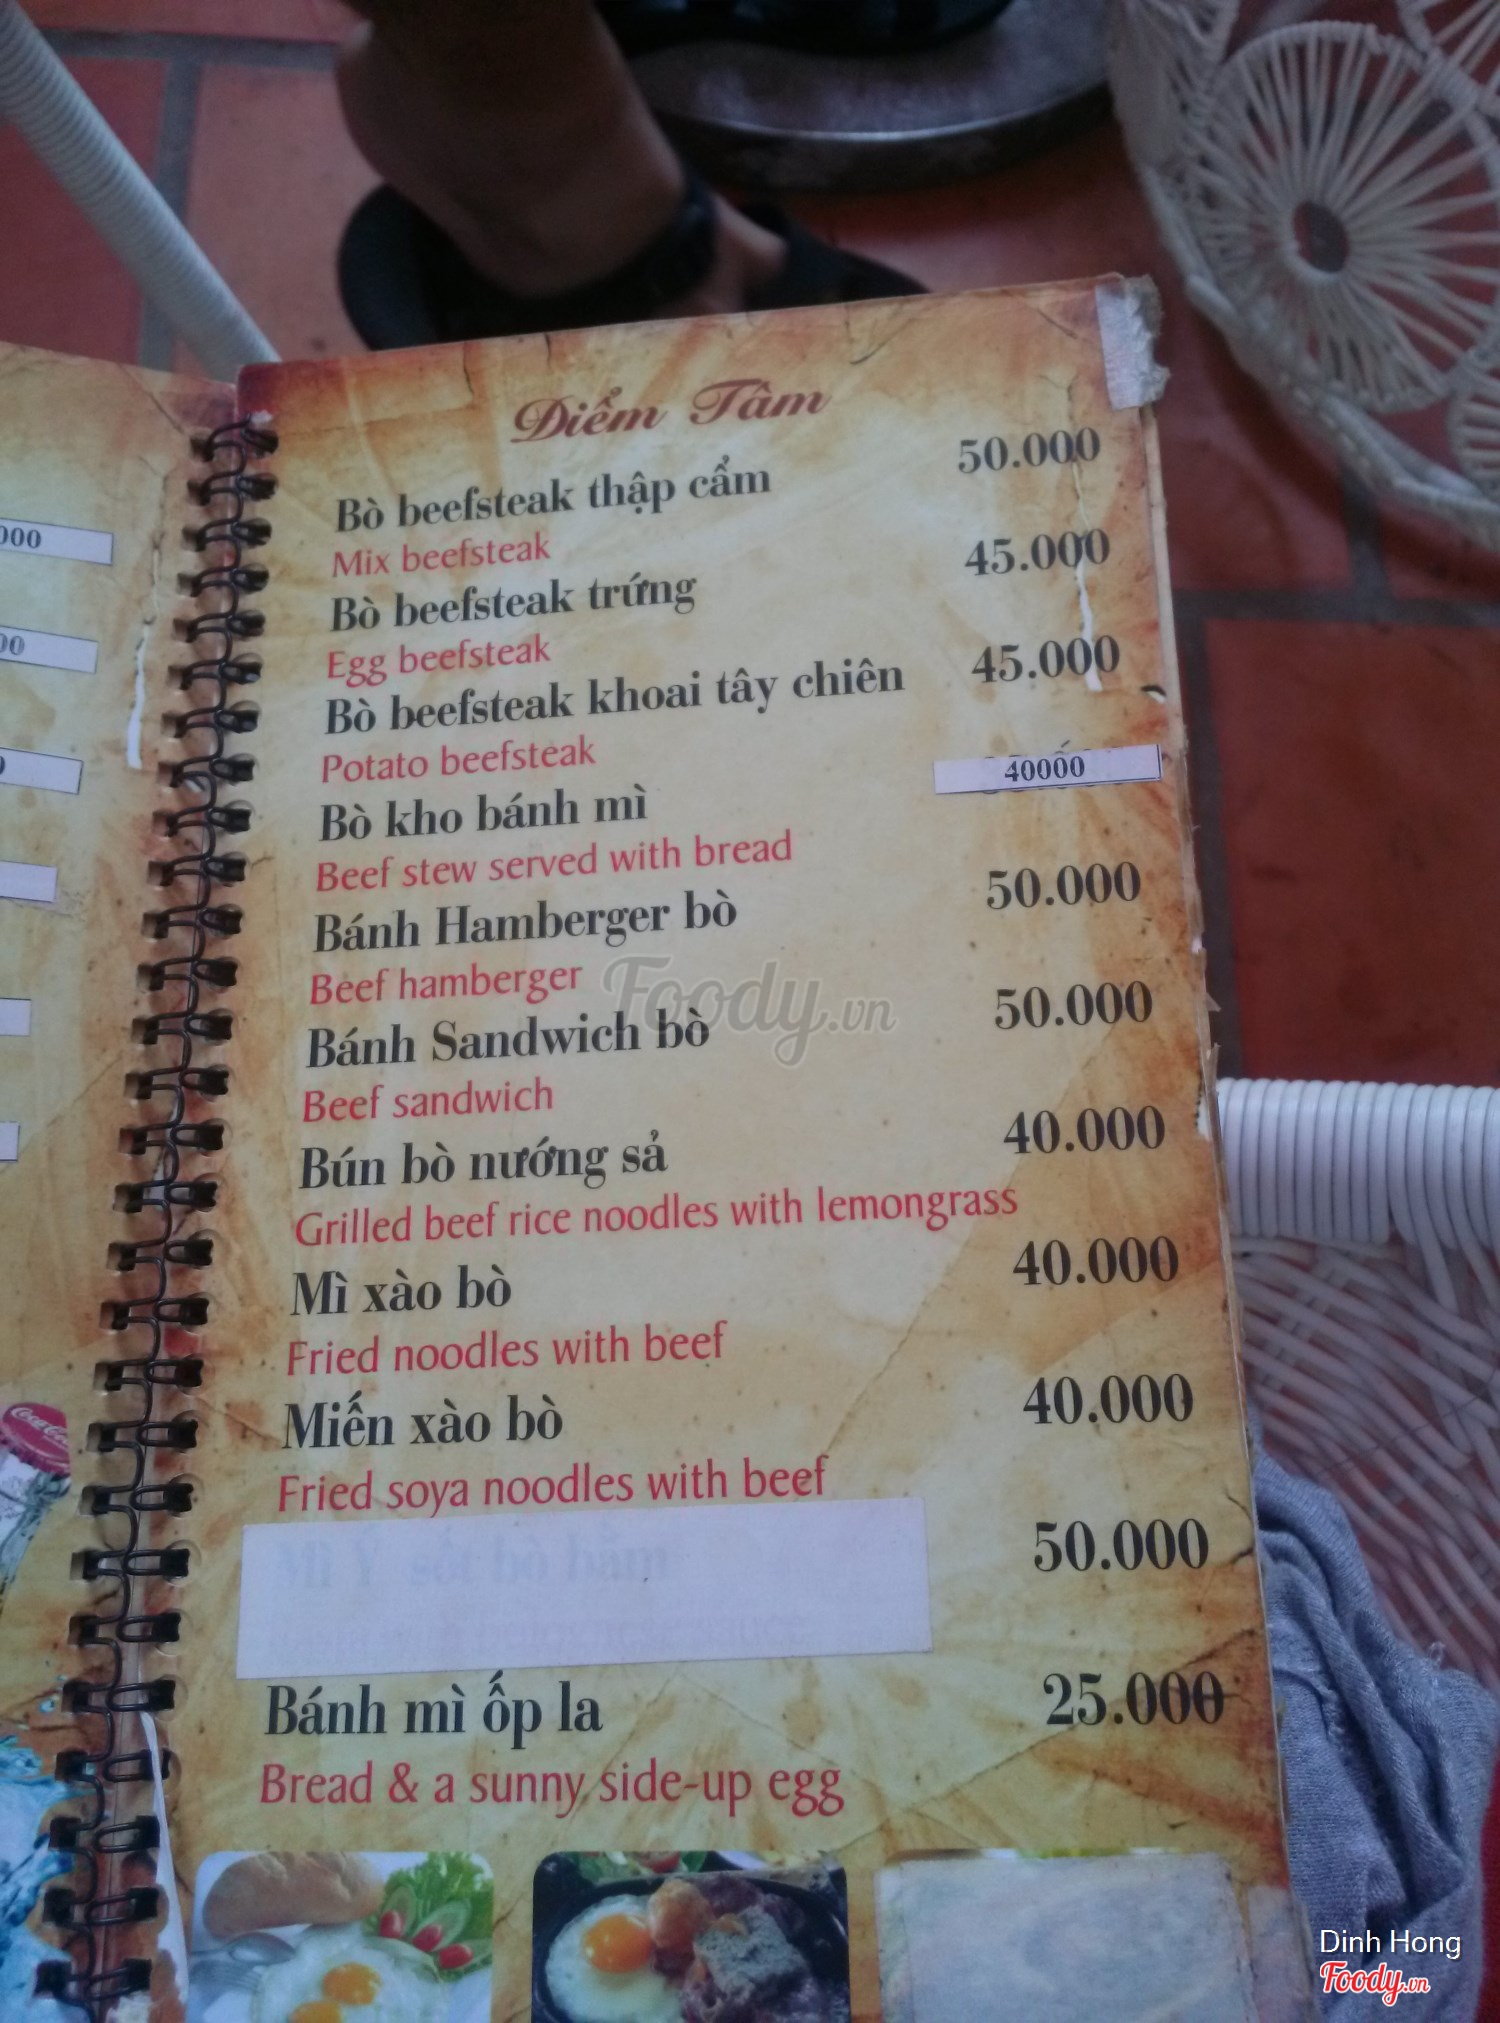 Điểm Tâm
Bò beefsteak thập cẩm 50.000
Mix beefsteak
Bò beefsteak trứng 45.000
Egg beefsteak
Bò beefsteak khoai tây chiên 45.000
Potato beefsteak
Bò kho bánh mì 40000
Beef stew served with bread
Bánh Hamberger bò 50.000
Beef hamberger
Bánh Sandwich bò 50.000
Beef sandwich
Bún bò nướng sả 40.000
Grilled beef rice noodles with lemongrass
Mì xào bò 40.000
Fried noodles with beef
Miến xào bò 40.000
Fried soya noodles with beef
Mì Ý sốt bò bằm 50.000
Bánh mì ốp la 25.000
Bread & a sunny side-up egg
Foody.vn
Dinh Hong
Foody.vn